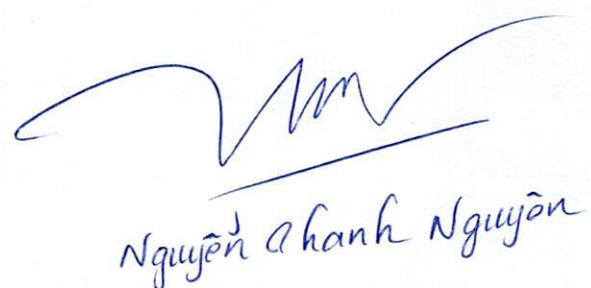 Nguyễn Chanh Nguyên